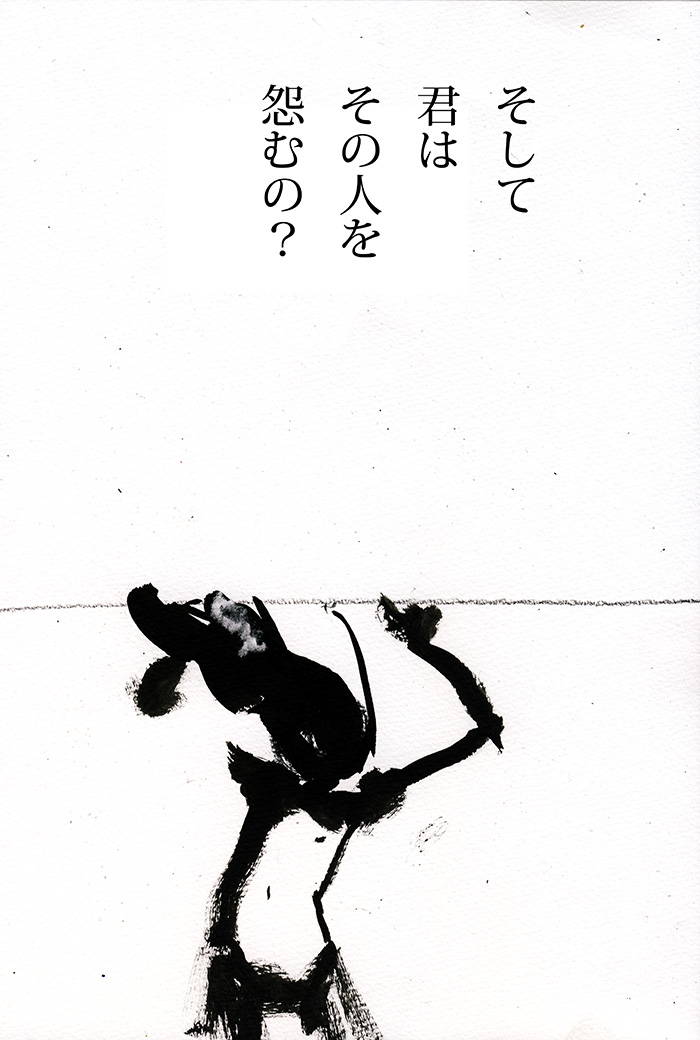 そして
君は
その人を
怨むの？